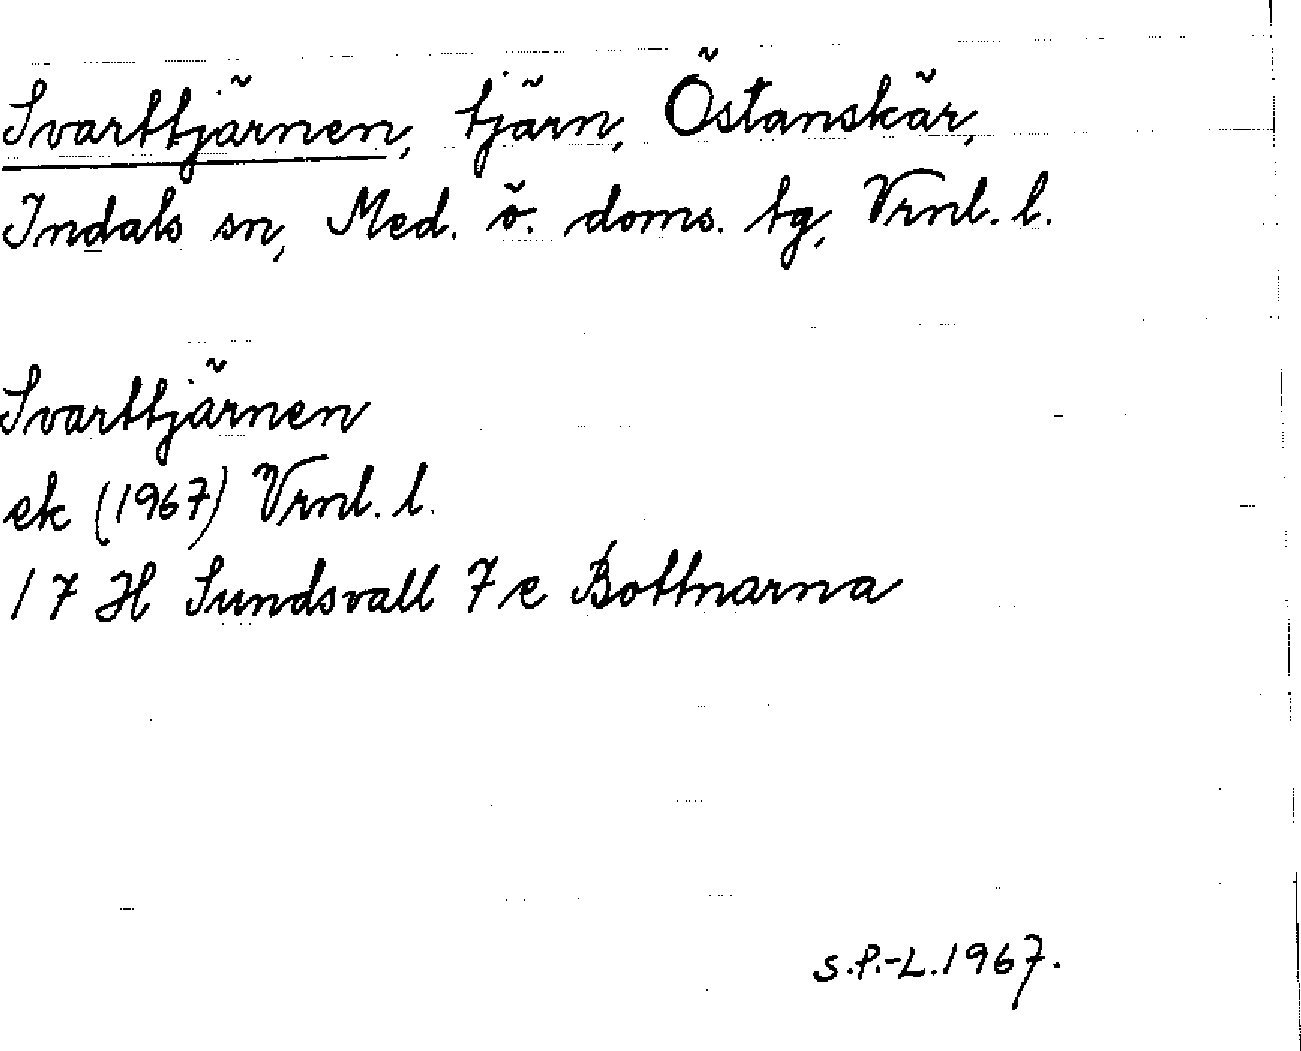 Svarttjärnen, tjärn, Östanskär,
Indals sn, Med. ö. doms. tg, Vrnl. l.
Svarttjärnen
ek (1967) Vrnl. l.
17 H Sundsvall 7 e Bottnarna
S.P.-L. 1967.